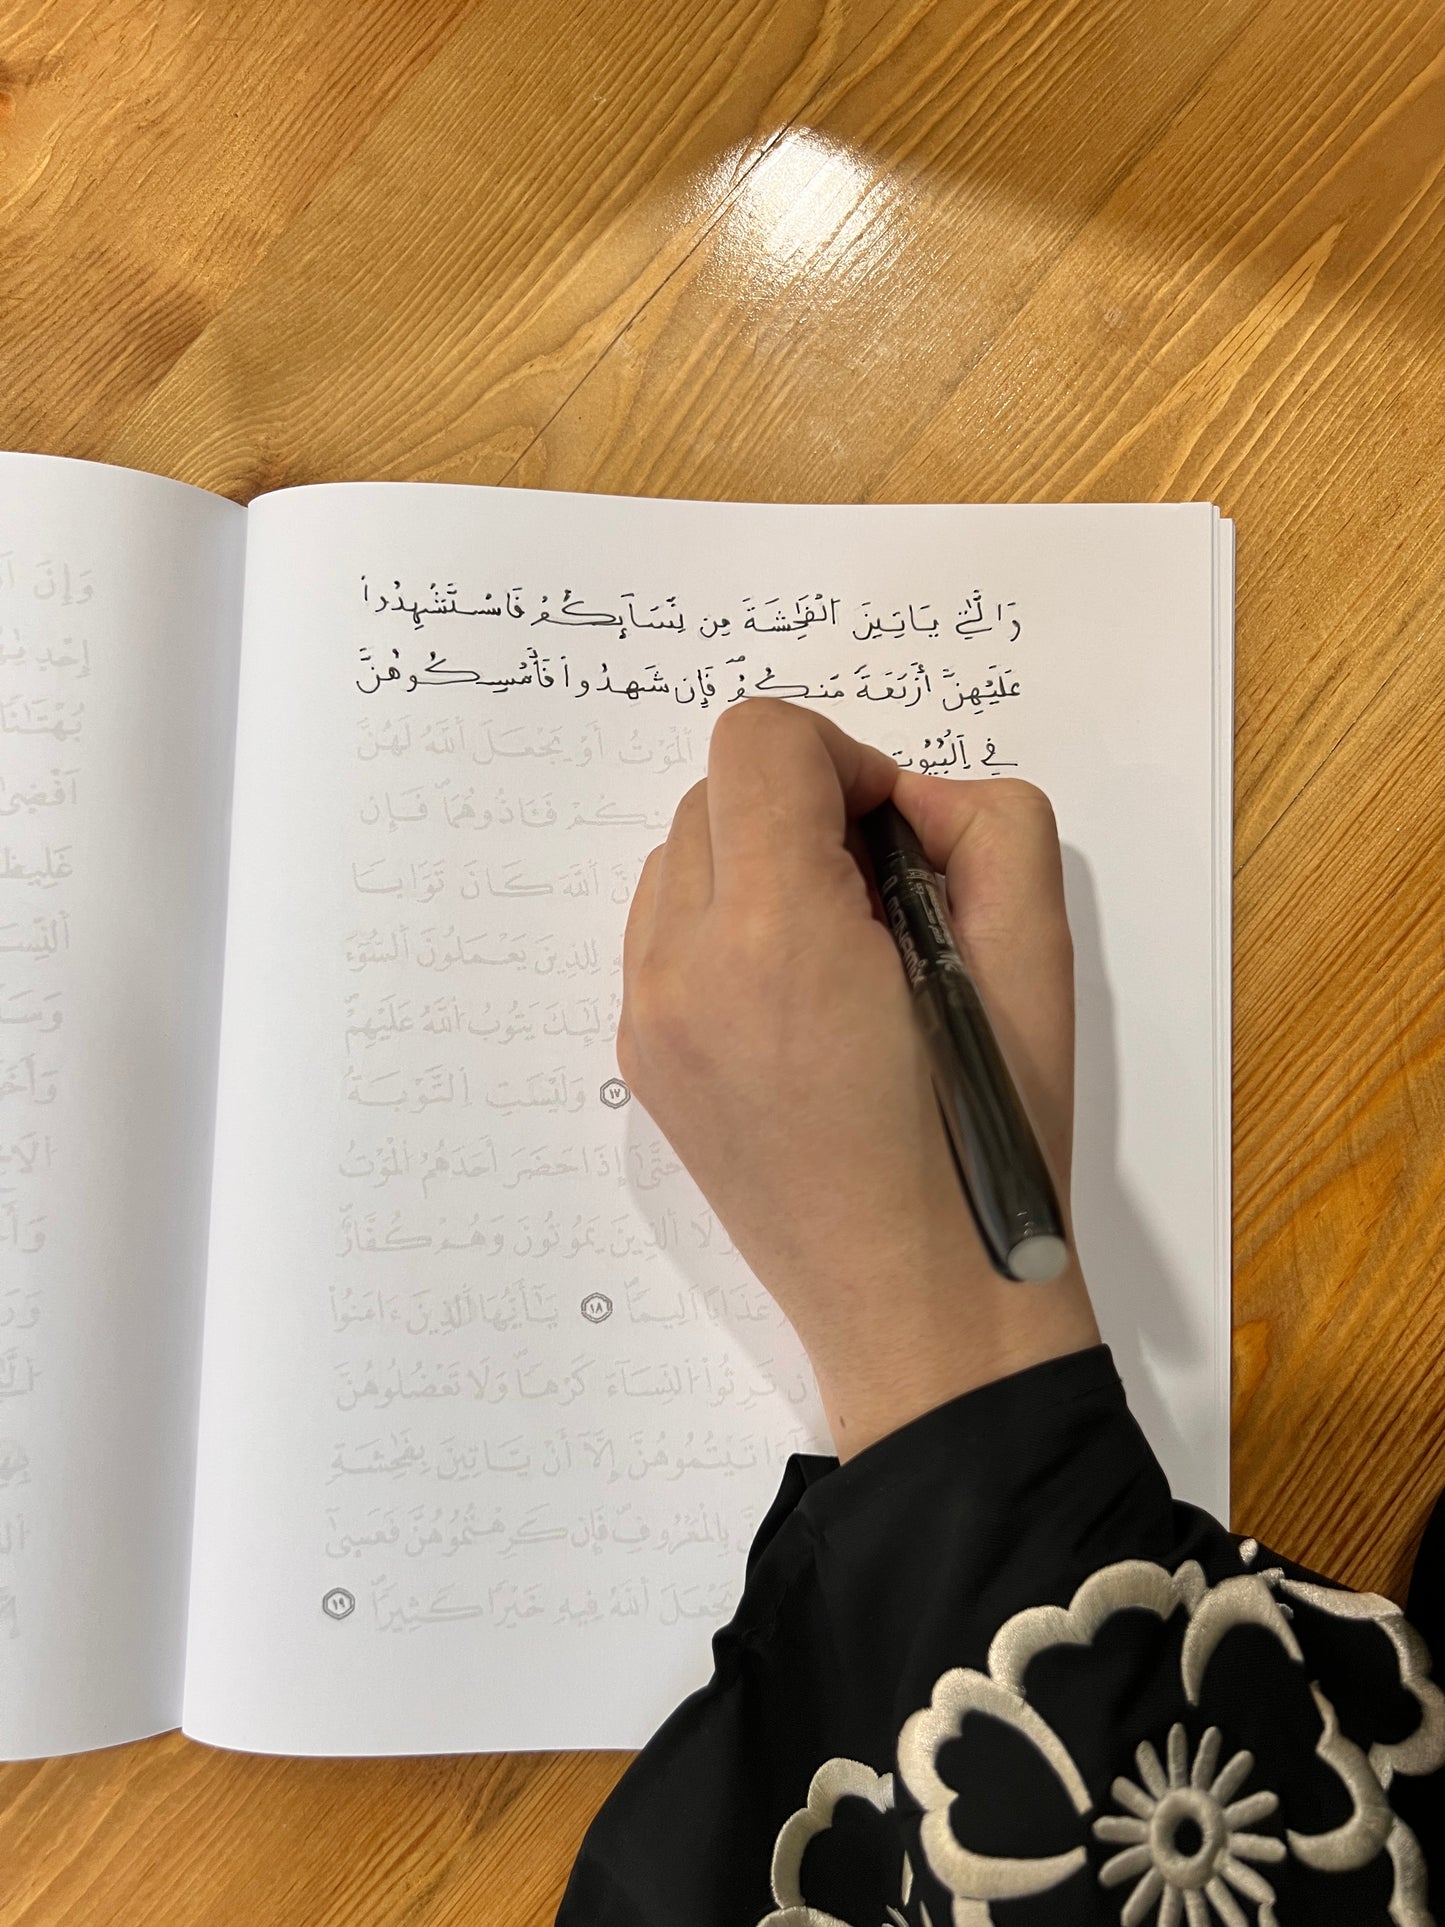 وَالَّٰتِے يَاتِينَ اَ۬لْفَٰحِشَةَ مِن نِّسَآئِكُمْ فَاسْتَشْهِدُواْ
عَلَيْهِنَّ أَرْبَعَةٗ مِّنكُمْۖ فَإِن شَهِدُواْ فَأَمْسِكُوهُنَّ
فِے اِ۬لْبُيُوتِ اُ۬لْمَوْتُ أَوْ يَجْعَلَ اَ۬للَّهُ لَهُنَّ
مِنكُمْ فَـَٔاذُوهُمَاۖ فَإِن
إِنَّ اَ۬للَّهَ كَانَ تَوَّاباٗ
لِلذِينَ يَعْمَلُونَ اَ۬لسُّوٓءَ
فَأُوْلَٰٓئِكَ يَتُوبُ اُ۬للَّهُ عَلَيْهِمْۖ
١٧ وَلَيْسَتِ اِ۬لتَّوْبَةُ
حَتَّيٰٓ إِذَا حَضَرَ أَحَدَهُمُ اُ۬لْمَوْتُ
وَلَا اَ۬لذِينَ يَمُوتُونَ وَهُمْ كُفَّارٌۖ
عَذَاباً اَلِيماٗۖ ١٨ يَٰٓأَيُّهَا اَ۬لذِينَ ءَامَنُواْ
أَن تَرِثُواْ اُ۬لنِّسَآءَ كَرْهاٗۖ وَلَا تَعْضُلُوهُنَّ
ءَاتَيْتُمُوهُنَّ إِلَّآ أَنْ يَّاتِينَ بِفَٰحِشَةٖ
بِالْمَعْرُوفِۖ فَإِن كَرِهْتُمُوهُنَّ فَعَسَيٰٓ
يَجْعَلَ اَ۬للَّهُ فِيهِ خَيْراٗ كَثِيراٗۖ ١٩
وَإِنْ
بُهْتَٰناٗ
أَفْضَيٰ